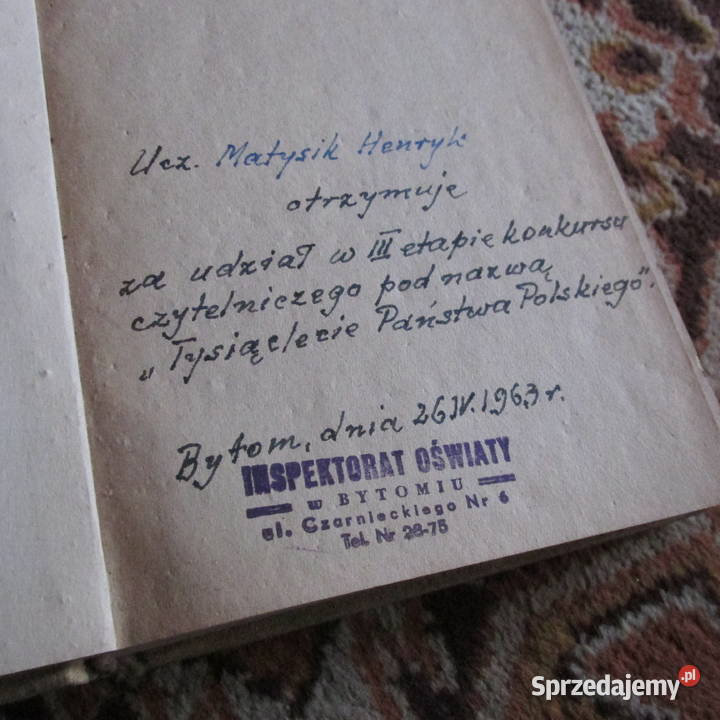 Ucz. Matysik Henryk
otrzymuje
za udział w III etapie konkursu
czytelniczego pod nazwą
„Tysiąclecie Państwa Polskiego".
Bytom, dnia 26.IV.1963 r.
INSPEKTORAT OŚWIATY
w BYTOMIU
ul. Czarnieckiego Nr 6
Tel. Nr 28-75
Sprzedajemy.pl